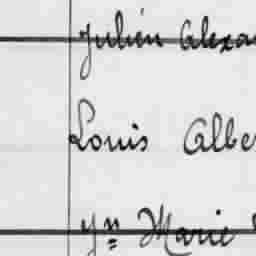 Julien Alexa
Louis Albe
Yn Marie